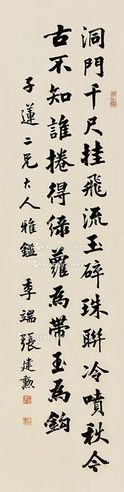 洞門千尺挂飛流玉碎珠聯冷噴秋今
古不知誰捲得綠蘿為帶玉為鉤
子蓮二兄大人雅鑑 季端張建勳